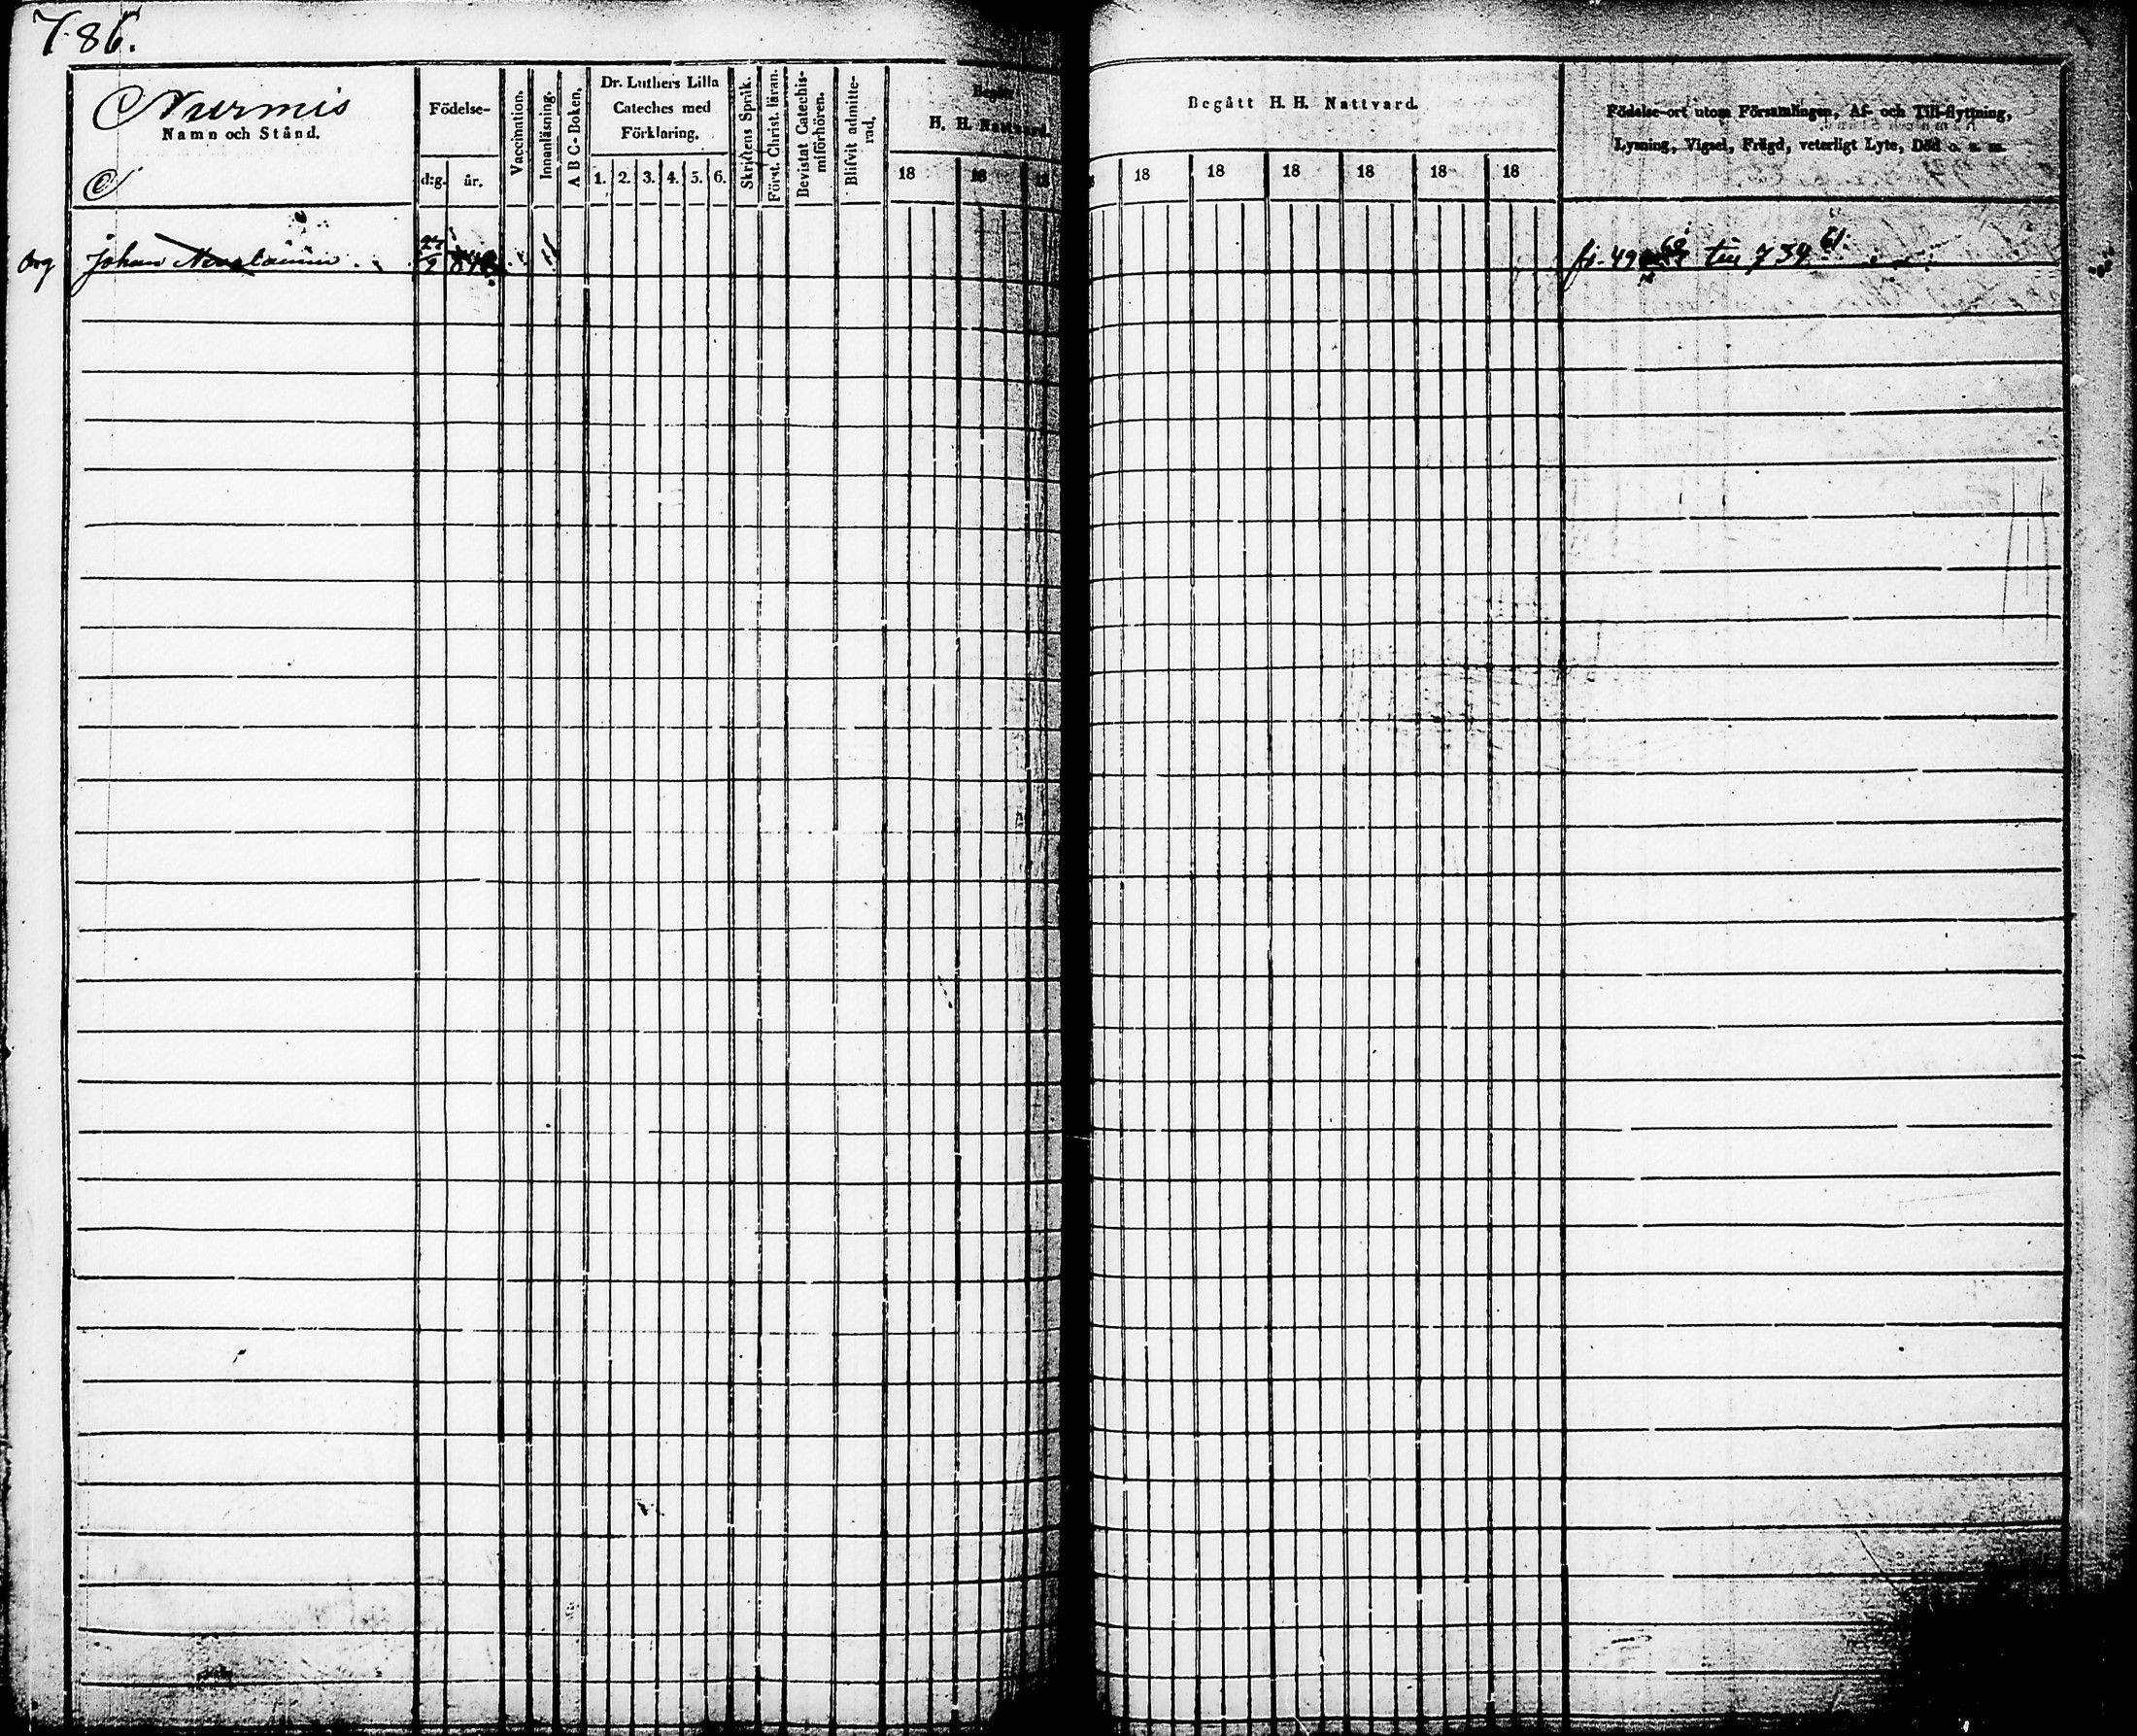 786.
Nurmis
Namn och Stånd.
Födelse-
d:g. år.
Vaccination.
Innanläsning.
A B C-Boken,
Dr. Luthers Lilla
Cateches med
Förklaring.
1. 2. 3. 4. 5. 6.
Skriftens Språk.
Först. Christ. läran.
Bevistat Catechis-
miförhören.
Blifvit admitte-
rad,
Begått
H. H. Nattvard.
18 18 18
Begått H. H. Nattvard.
18 18 18 18 18 18
Födelse-ort utom Församlingen, Af- och Till-flyttning,
Lysning, Vigsel, Frägd, veterligt Lyte, Död o. s. m.
Johan
27/2
fr. 49 till 734 61.